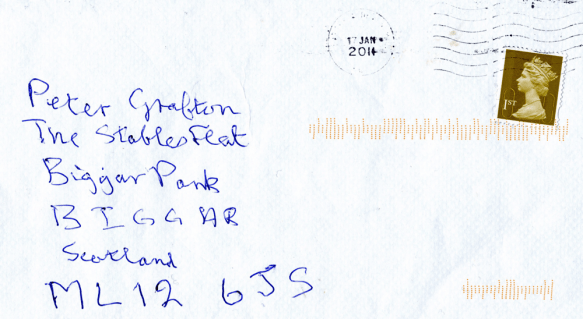 17 JAN
2011
1ST
Peter Grafton
The Stables Flat
Biggar Park
BIGGAR
Scotland
ML12 6JS